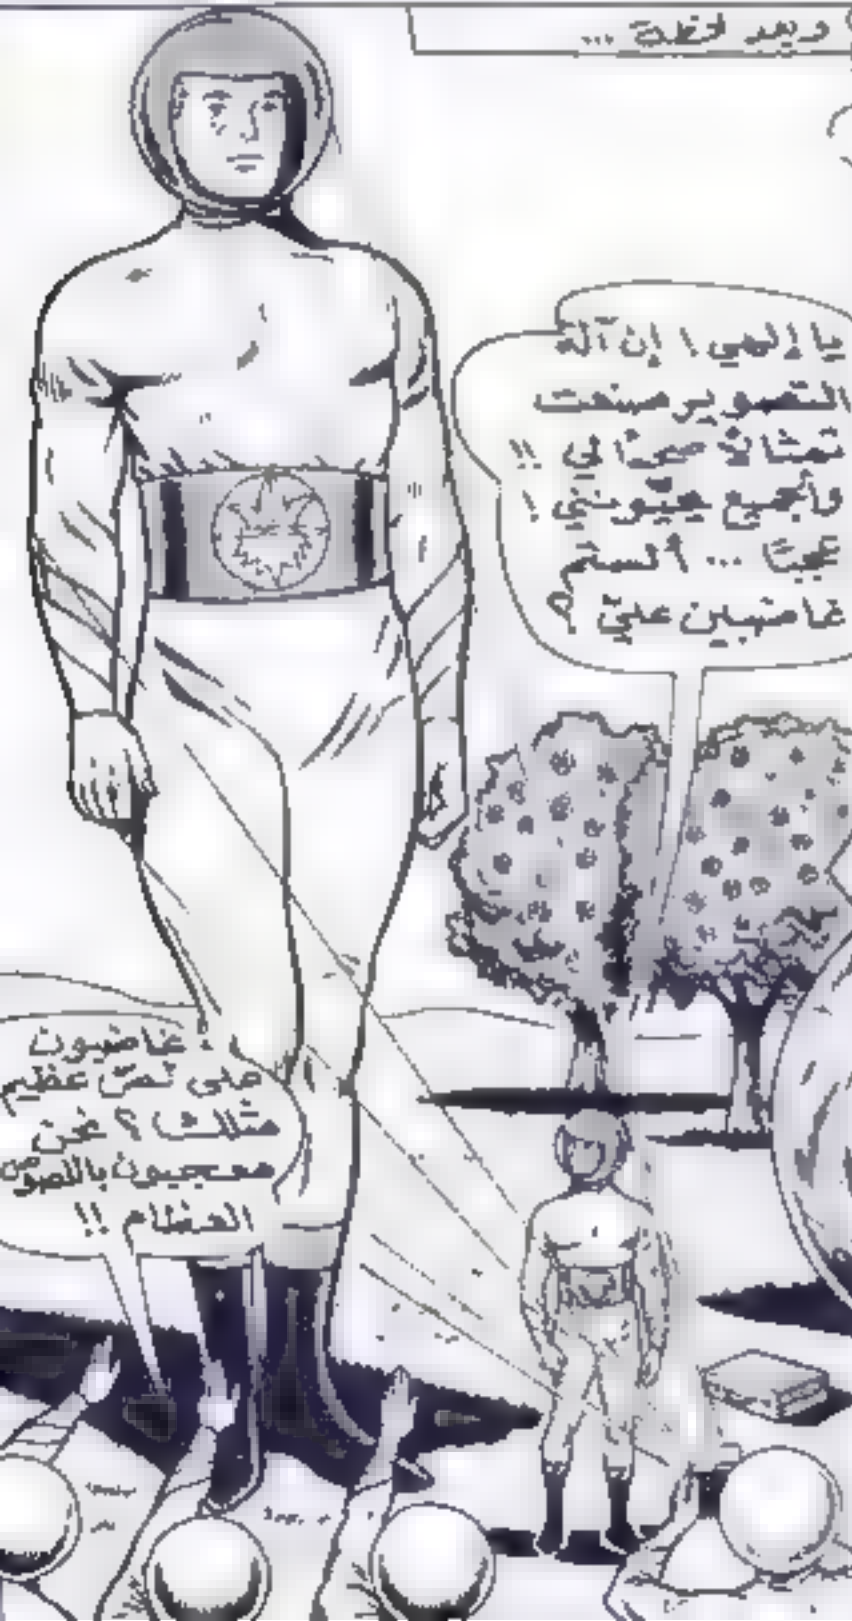 وبعد لحظة ...
يا إلهي ! إن آلة
التصوير صنعت
تمثالاً ضخمًا لي !!
والجميع يحيّونني !
عجبًا ... ألستم
غاضبين عليّ ؟
غاضبون
على لصّ عظيم
مثلك ؟ نحن
معجبون باللصوص
العظام !!